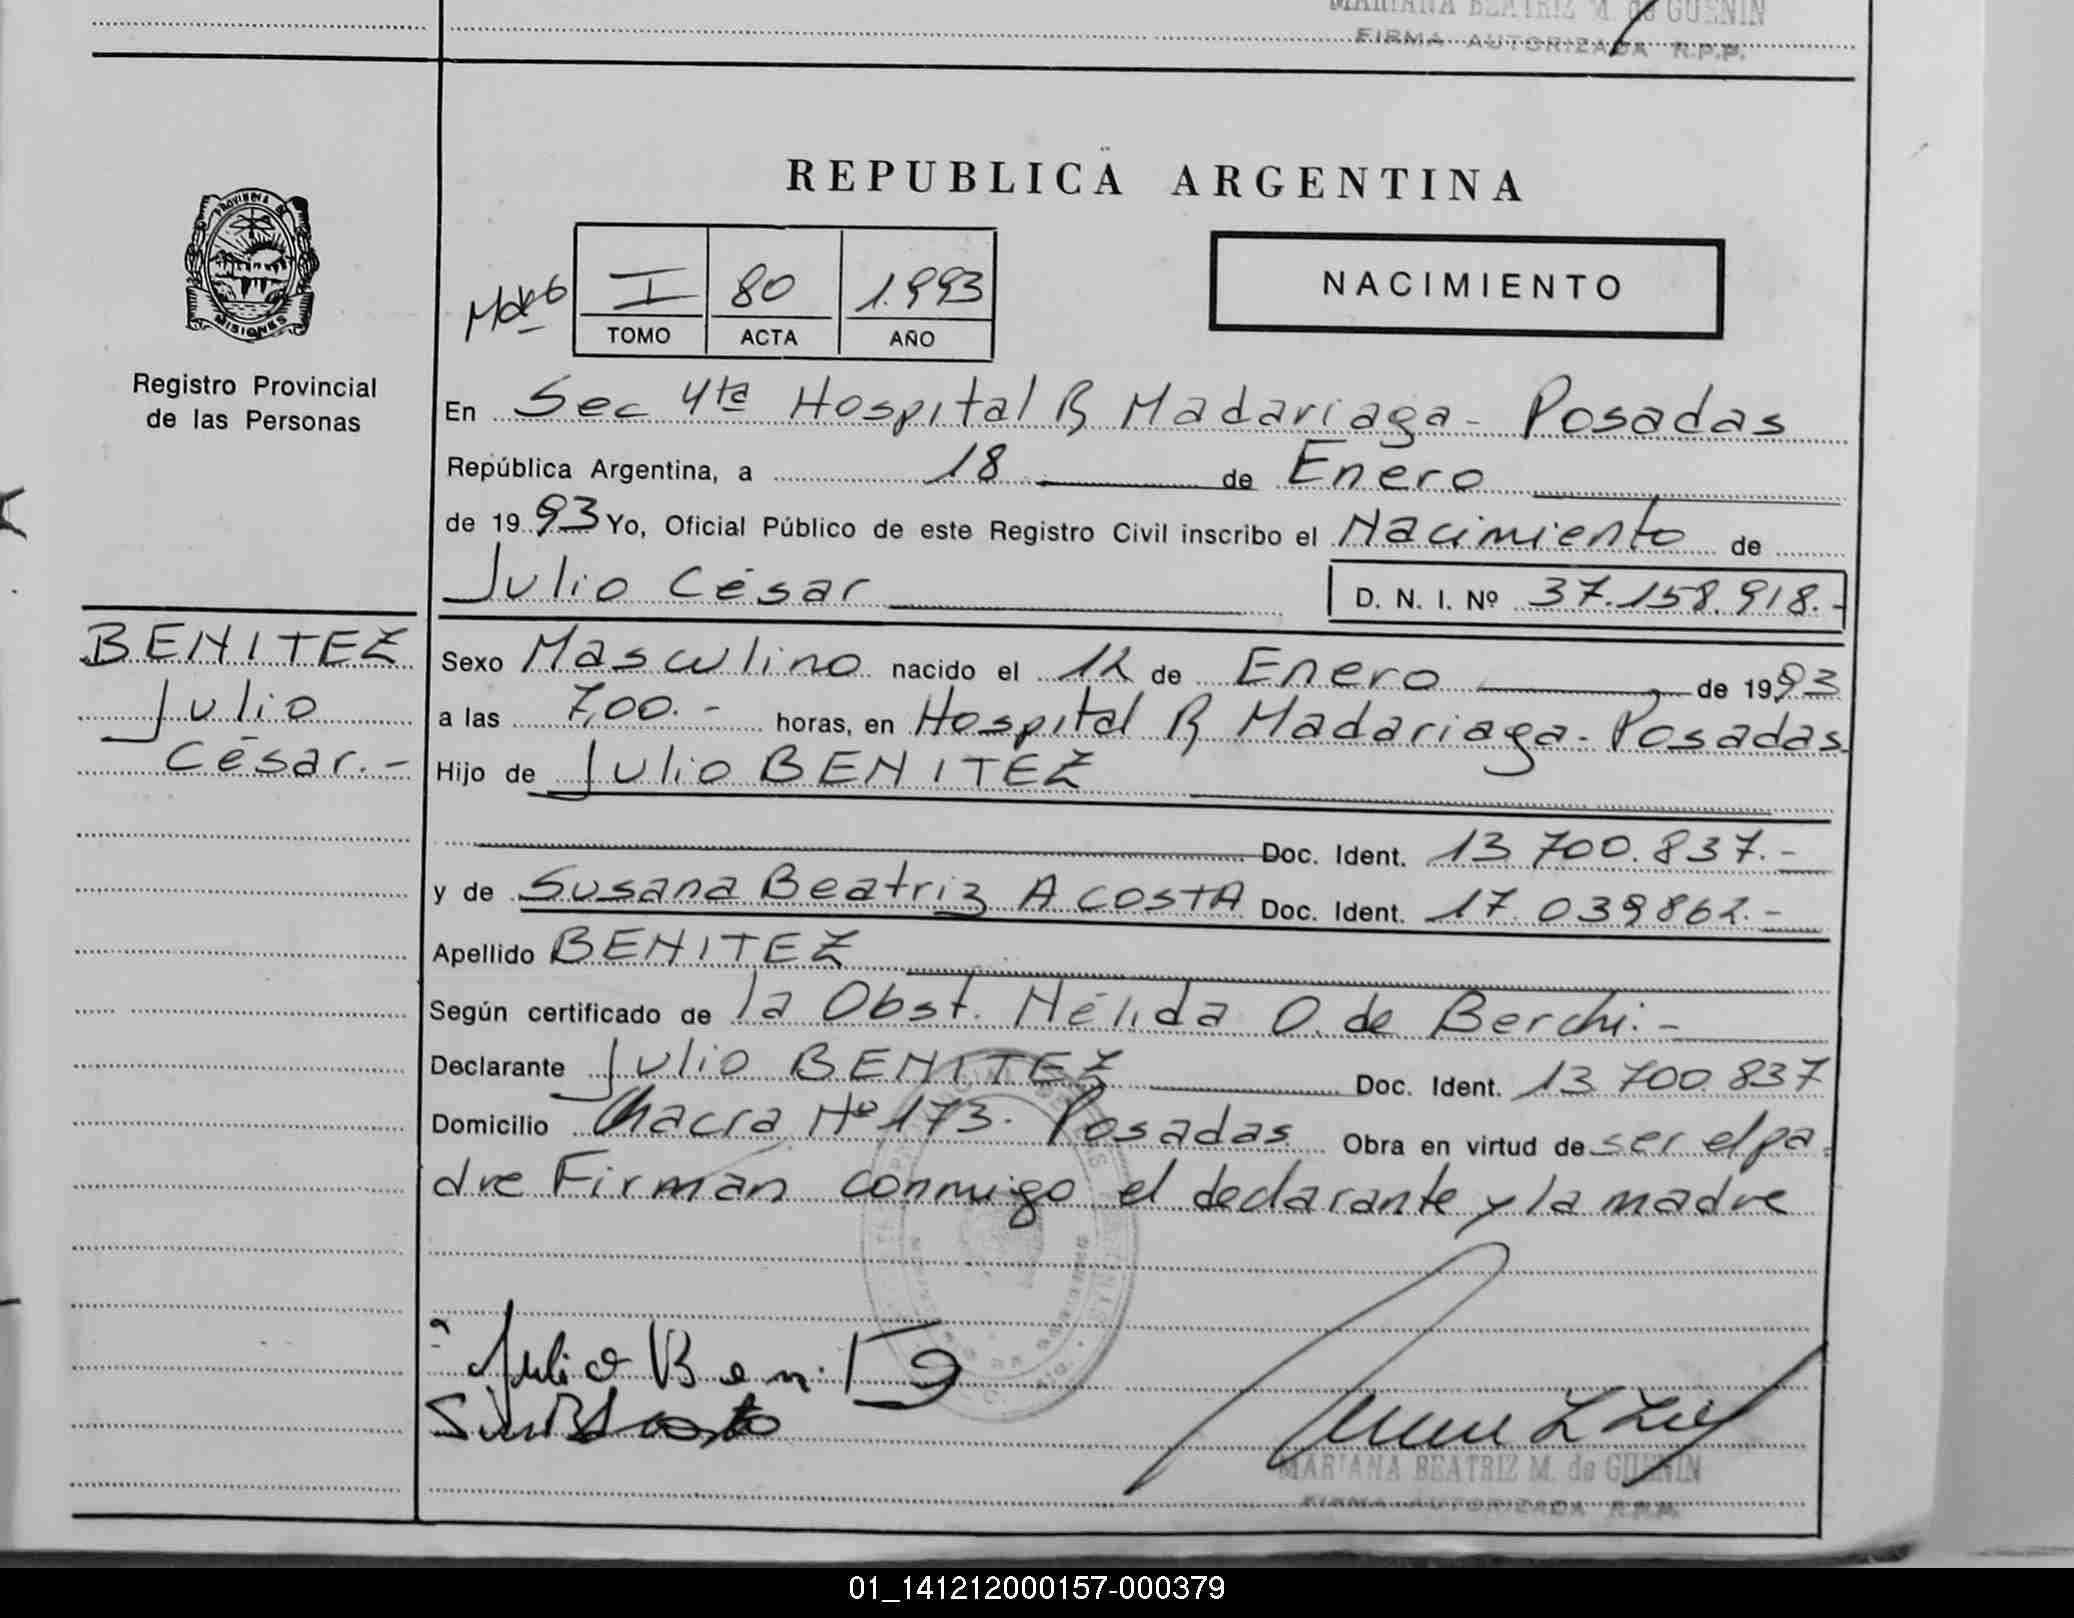 MARIANA BEATRIZ M. de GUENIN
FIRMA AUTORIZADA R.P.P.
REPUBLICA ARGENTINA
PROVINCIA DE
MISIONES
Registro Provincial
de las Personas
I 80 1.993
TOMO ACTA AÑO
NACIMIENTO
En Sec 4ta Hospital R Madariaga - Posadas
República Argentina, a 18 de Enero
de 1993 Yo, Oficial Público de este Registro Civil inscribo el Nacimiento de
Julio César D. N. I. Nº 37.158.918.-
BENITEZ
Julio
César.-
Sexo Masculino nacido el 12 de Enero de 1993
a las 7,00.- horas, en Hospital R Madariaga - Posadas
Hijo de Julio BENITEZ
Doc. Ident. 13 700.837.-
y de Susana Beatriz ACOSTA Doc. Ident. 17.039862.-
Apellido BENITEZ
Según certificado de la Obst. Nélida O. de Berchi.-
Declarante Julio BENITEZ Doc. Ident. 13 700.837
Domicilio Chacra Nº 173. Posadas Obra en virtud de ser el pa-
dre Firman conmigo el declarante y la madre
Julio Benitez
MARIANA BEATRIZ M. de GUENIN
FIRMA AUTORIZADA R.P.P.
01_141212000157-000379